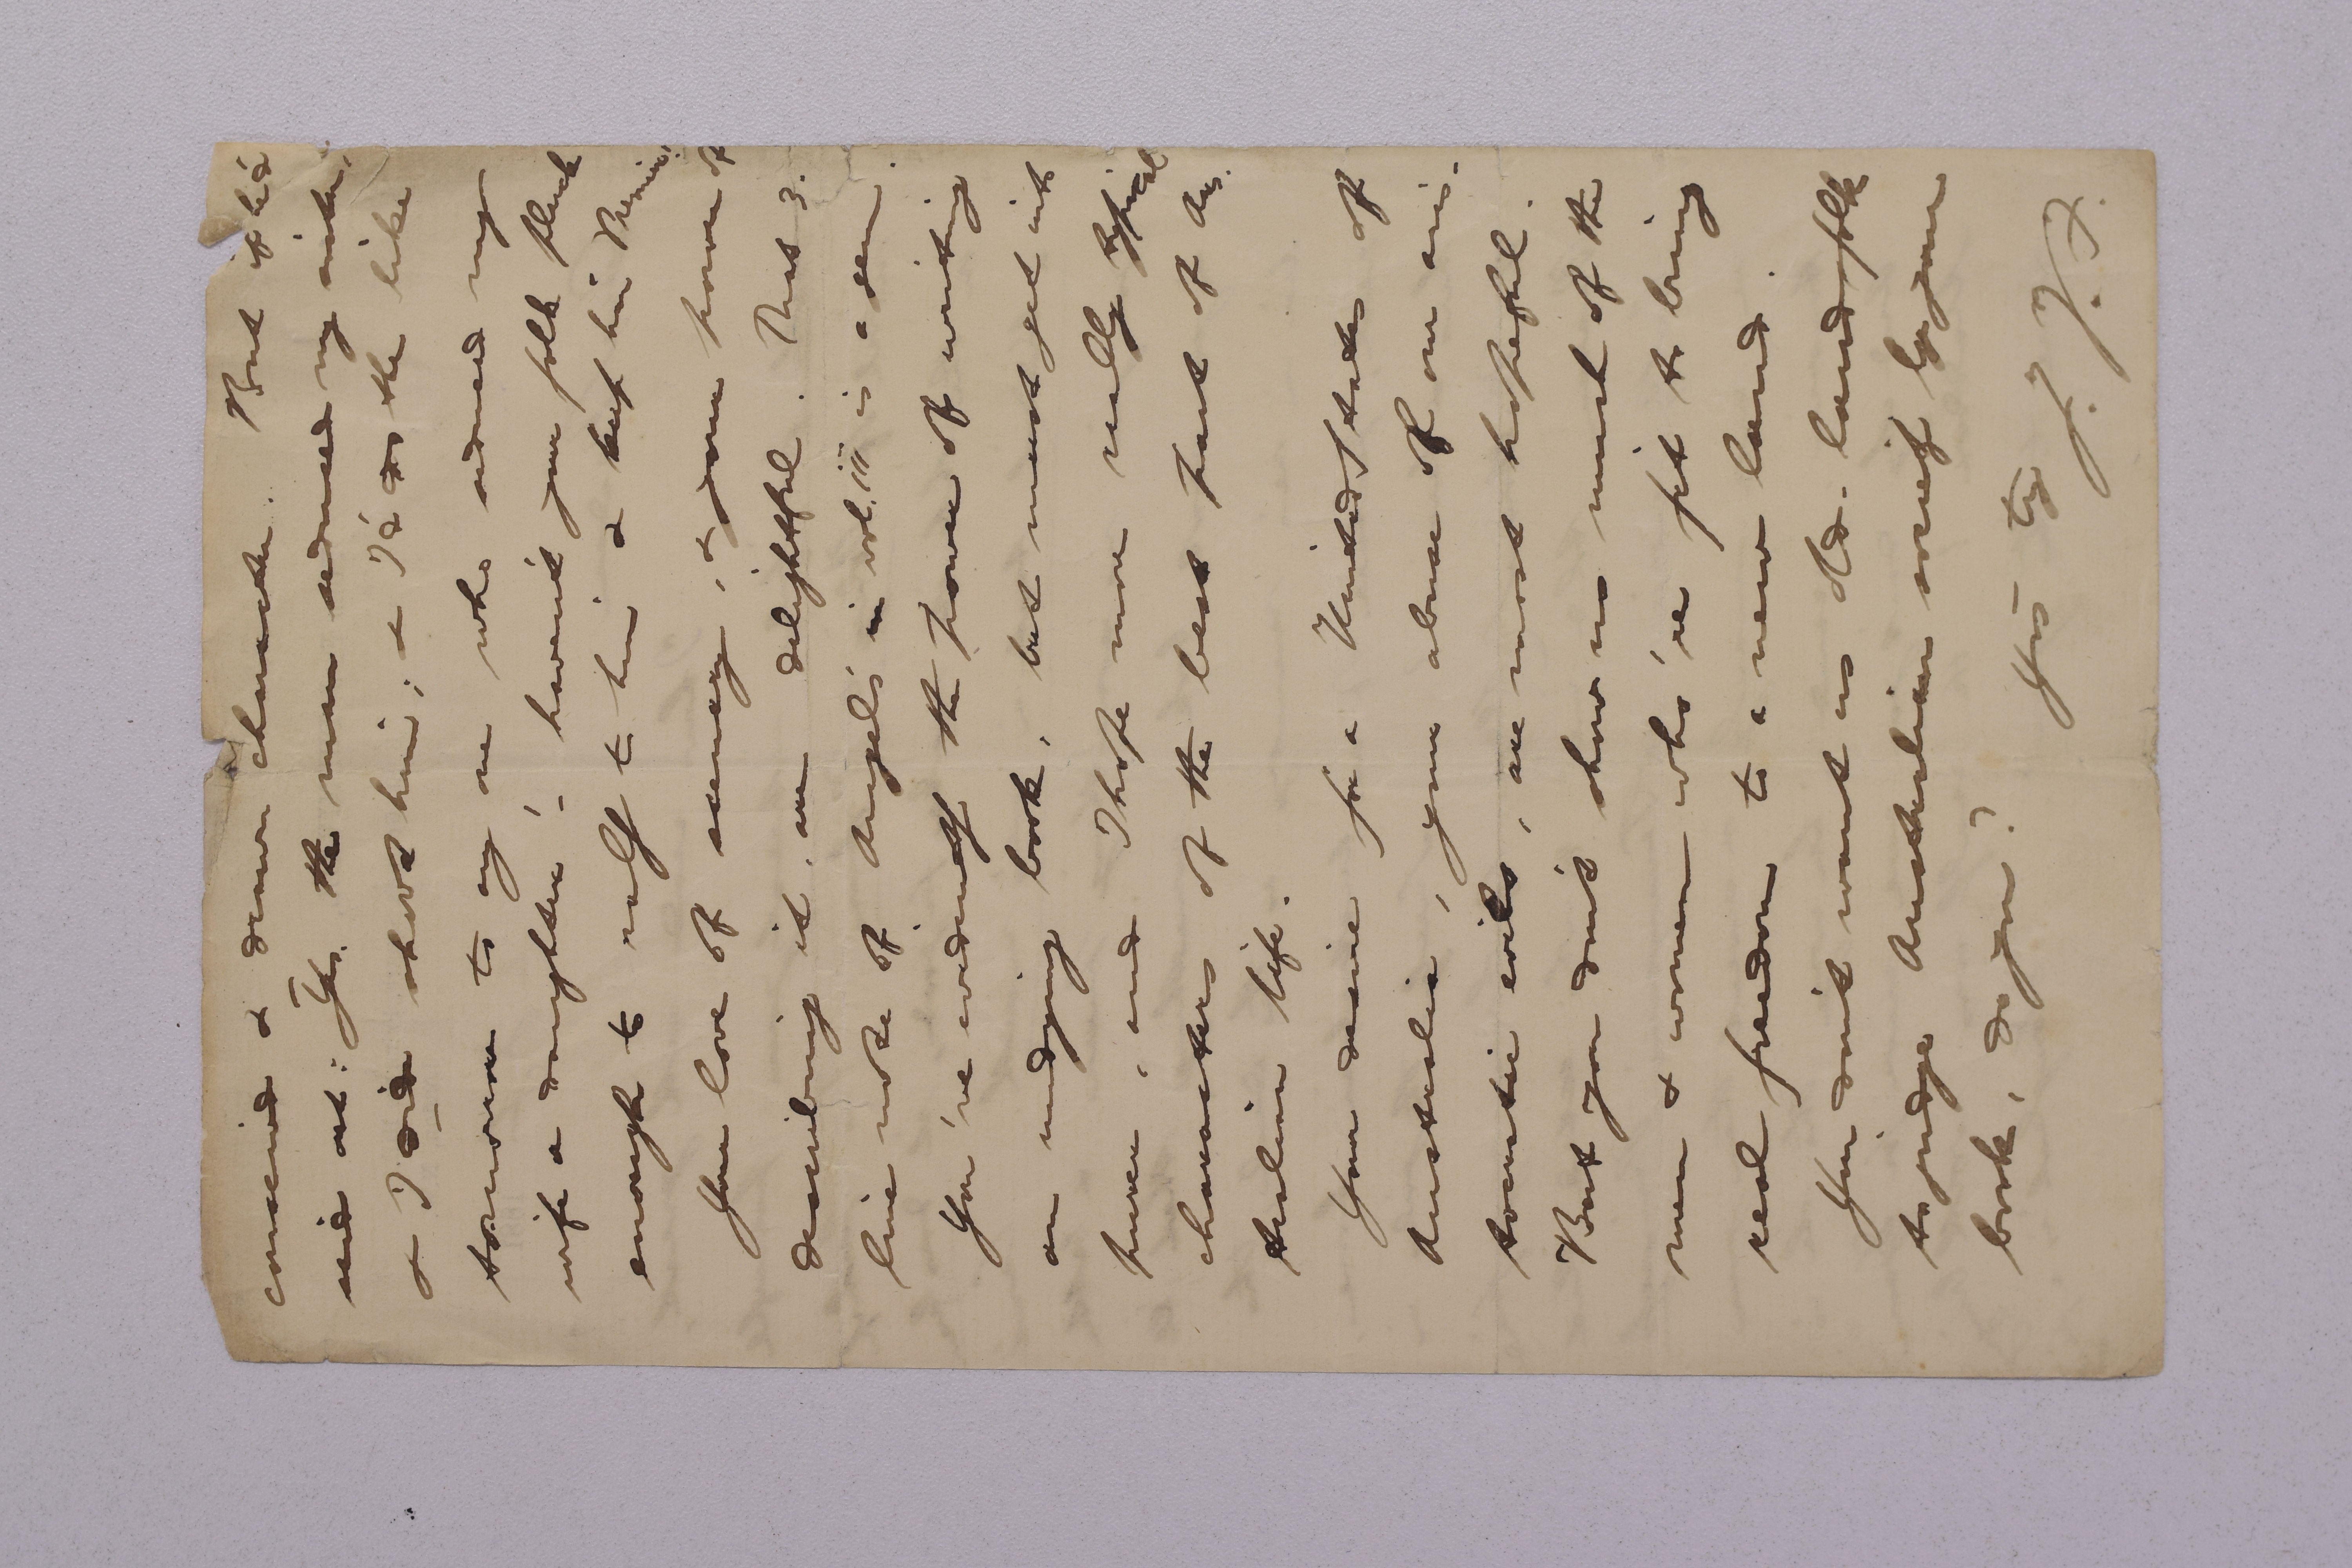 conceived & drawn character. But if he'd
said out: Yes. the man admired my wife,
& I did shoot him; & I'd do the like
tomorrow to any one who admired my
wife & daughter! - haven't your folk pluck
enough to rally to him & keep him Premier?
Your love of scenery, & your power of
describing it, are delightful. That 3.
line note of Angel's in vol. iii is a gem.
You've evidently the power of writing
an undying book, but must get into
purer, and I hope more really typical
characters of the best part of Aus.
tralian life.
Your desire for a United States of
Australia, your abuse of our aris-
tocratic evils, are most hopeful.
But you don't show us much of the
men & women who're fit to bring
real freedom to a new land.
You don't want us old-land folk
to judge Australian society by your
book, do you?
Yrs truly
F. J. F.